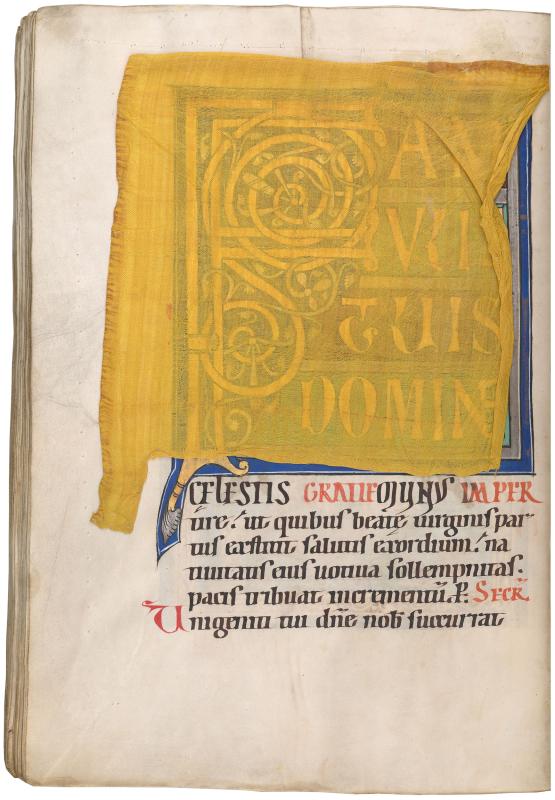 FAM
ULI
TUIS
DOMIN
CELESTIS GRATIE MUNUS IMPER
tire.' ut quibus beatę uirginis par
tus extitit salutis exordium.' na
tiuitatis eius uotiua sollempnitas.'
pacis tribuat incrementū. P. SECR̄.
Unigeniti tui dn̄e nob̄ succurrat